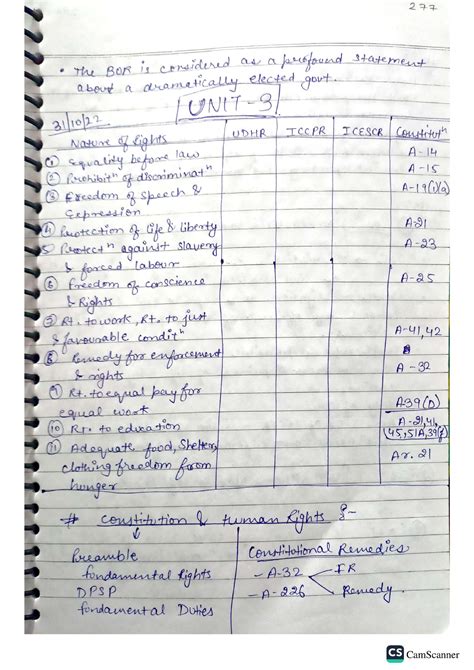 277
• The BOR is considered as a profound statement
about a dramatically elected govt.
UNIT-3
31/10/22
Nature of Rights UDHR ICCPR ICESCR Constitutⁿ
① Equality before law A-14
② Prohibitⁿ of discriminatⁿ A-15
③ Freedom of speech & A-19(1)(a)
Expression
④ Protection of life & liberty A-21
5 Protectⁿ against slavery A-23
& forced labour
⑥ Freedom of conscience A-25
& Rights
⑦ Rt. to work, Rt. to just
& favourable conditⁿ A-41,42
⑧ Remedy for enforcement
& rights A-32
⑨ Rt. to equal pay for
equal work A39(D)
⑩ Rt. to education A-21,41,
(45,51A,39(f)
⑪ Adequate food, Shelter, Ar. 21
clothing freedom from
hunger
# Constitution & Human Rights :-
Preamble
fundamental Rights
DPSP
fundamental Duties
Constitutional Remedies
-A-32 FR
-A-226 Remedy.
CS CamScanner